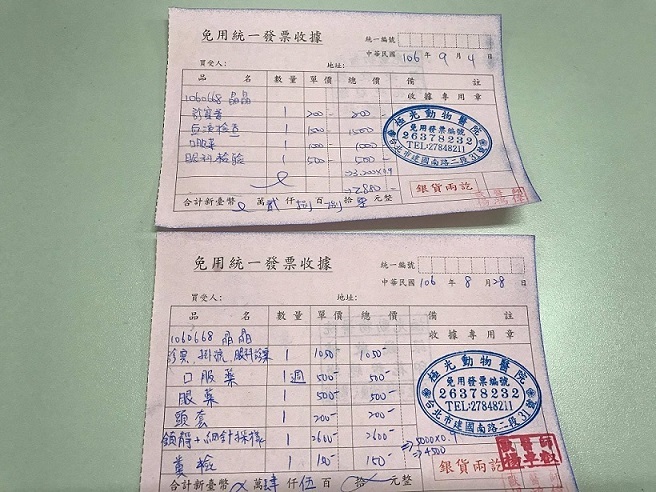 免用統一發票收據
統一編號
中華民國 106 年 9 月 4 日
買受人： 地址：
品 名 數量 單價 總價 備 註
1060668 晶晶 收據專用章
診察費 1 200- 200-
1 1500 1500
口服藥 1 1000 1000
眼科檢驗 1 500- 500-
極光動物醫院
免用發票編號
26378232
TEL:27848211
台北市建國南路二段31號
→2880-
銀貨兩訖
合計新臺幣 萬 貳 仟 捌 百 捌 拾 零 元整
免用統一發票收據
統一編號
中華民國 106 年 8 月 28 日
買受人： 地址：
品 名 數量 單價 總價 備 註
1060668 晶晶 收據專用章
診察、掛號、眼科診察 1 1050- 1050-
口服藥 1週 500- 500-
眼藥 1 500- 500-
頭套 1 200- 200-
鎮靜+細針採樣 1 2600- 2600-
糞檢 1 150- 150-
極光動物醫院
免用發票編號
26378232
TEL:27848211
台北市建國南路二段31號
⇒5000×0.9
⇒4500
獸醫師
銀貨兩訖
合計新臺幣 萬 肆 仟 伍 百 拾 元整